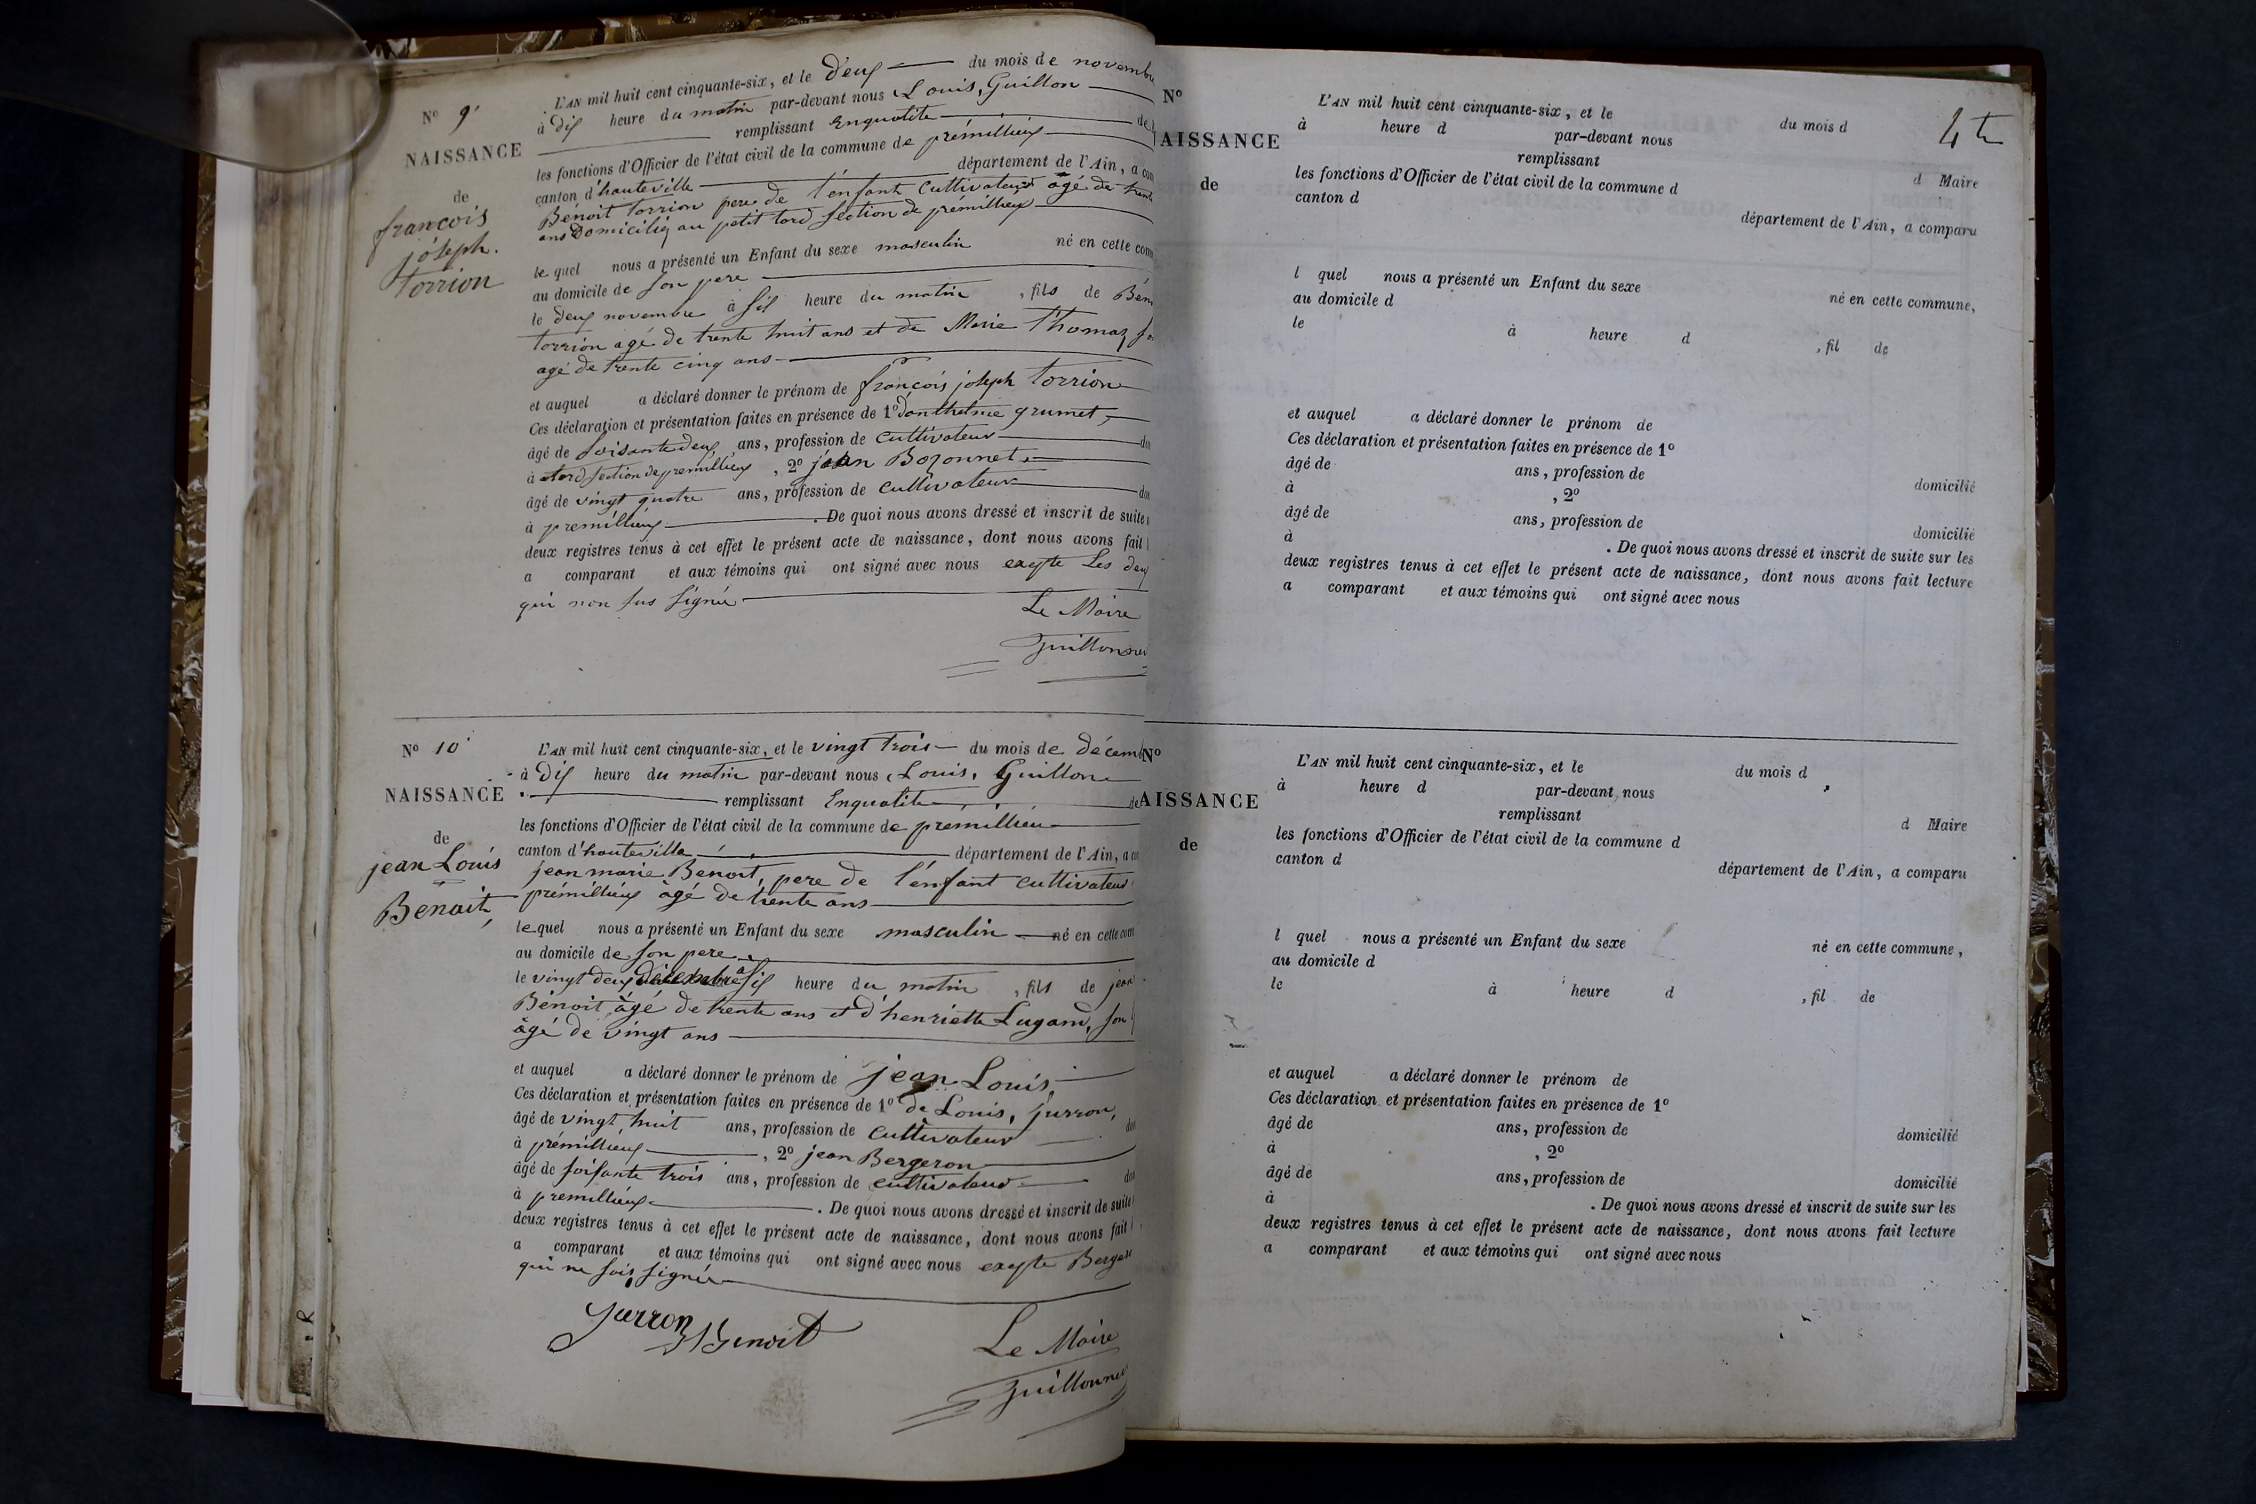 N° 9
NAISSANCE
de
francois
joseph.
torrion
L'AN mil huit cent cinquante-six, et le deux du mois de novembre
à dix heure du matin par-devant nous Louis, Guillon
remplissant Enqualité de
les fonctions d'Officier de l'état civil de la commune de prémillieux
canton d'hauteville département de l'Ain, a com
Bénoit torrion pere de l'enfant Cultivateur agé de trente
ans Domicilié au petit tord section de prémillieux
le quel nous a présenté un Enfant du sexe masculin né en cette com
au domicile de son pere
le deux novembre à six heure du matin , fils de Bén
torrion agé de trente huit ans et de Marie Thomas
agé de trente cinq ans
et auquel a déclaré donner le prénom de françois joseph torrion
Ces déclaration et présentation faites en présence de 1° danthelme grumet,
âgé de soisante deux ans, profession de cultivateur do
à tord section de premillieux , 2° jean Bozonnet
âgé de vingt quatre ans, profession de cultivateur do
à premillieux . De quoi nous avons dressé et inscrit de suite
deux registres tenus à cet effet le présent acte de naissance, dont nous avons fait
a comparant et aux témoins qui ont signé avec nous exepte Les deux
qui non sus signée
Le Maire
Guillon
N° 10
NAISSANCE
de
jean Louis
Benoit,
L'AN mil huit cent cinquante-six, et le vingt trois du mois de décem
à dix heure du matin par-devant nous Louis, Guillon
remplissant Enqualité de
les fonctions d'Officier de l'état civil de la commune de premillieu
canton d'hauteville département de l'Ain, a
jean marie Benoit, pere de l'énfant cultivateur
prémillieux âgé de trente ans
le quel nous a présenté un Enfant du sexe masculin né en cette com
au domicile de son pere
le vingt deux décembre à six heure du matin , fils de jean
Bénoit âgé de trente ans et d'henriette Lugand, son
âgé de vingt ans
et auquel a déclaré donner le prénom de jean Louis,
Ces déclaration et présentation faites en présence de 1° de Louis, jurron,
âgé de vingt, huit ans, profession de cultivateur do
à prémillieux , 2° jean Bergeron
âgé de soisante trois ans, profession de cultivateur do
à premillieux . De quoi nous avons dressé et inscrit de suite
deux registres tenus à cet effet le présent acte de naissance, dont nous avons fait
a comparant et aux témoins qui ont signé avec nous exepte Berge
qui ne sais signée
Jurron Benoit
Le Maire
Guillon
4
N°
AISSANCE
de
L'AN mil huit cent cinquante-six, et le du mois d
à heure d par-devant nous
remplissant d Maire
les fonctions d'Officier de l'état civil de la commune d
canton d département de l'Ain, a comparu
l quel nous a présenté un Enfant du sexe né en cette commune,
au domicile d
le à heure d , fil de
et auquel a déclaré donner le prénom de
Ces déclaration et présentation faites en présence de 1°
âgé de ans, profession de domicilié
à , 2°
âgé de ans, profession de domicilié
à . De quoi nous avons dressé et inscrit de suite sur les
deux registres tenus à cet effet le présent acte de naissance, dont nous avons fait lecture
a comparant et aux témoins qui ont signé avec nous
N°
AISSANCE
de
L'AN mil huit cent cinquante-six, et le du mois d
à heure d par-devant nous
remplissant d Maire
les fonctions d'Officier de l'état civil de la commune d
canton d département de l'Ain, a comparu
l quel nous a présenté un Enfant du sexe né en cette commune,
au domicile d
le à heure d , fil de
et auquel a déclaré donner le prénom de
Ces déclaration et présentation faites en présence de 1°
âgé de ans, profession de domicilié
à , 2°
âgé de ans, profession de domicilié
à . De quoi nous avons dressé et inscrit de suite sur les
deux registres tenus à cet effet le présent acte de naissance, dont nous avons fait lecture
a comparant et aux témoins qui ont signé avec nous